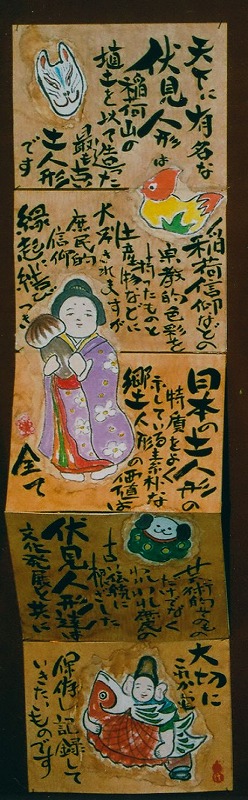 天下に有名な
伏見人形は
稲荷山の
埴土を以て造った
最造点
土人形
です
稲荷信仰などの
宗教的色彩を
持ったものと
土産物などに
大別されますが
庶民的
信仰
縁起に結びつき
全て
日本の土人形の
特質をよく
示している素朴な
郷土人形の価値は
芸術的なもの
だけでなく
われわれ庶民の
古い伝統に
根ざした
伏見人形達は
文化発展と共に
大切に
保存し記録して
いきたいものです